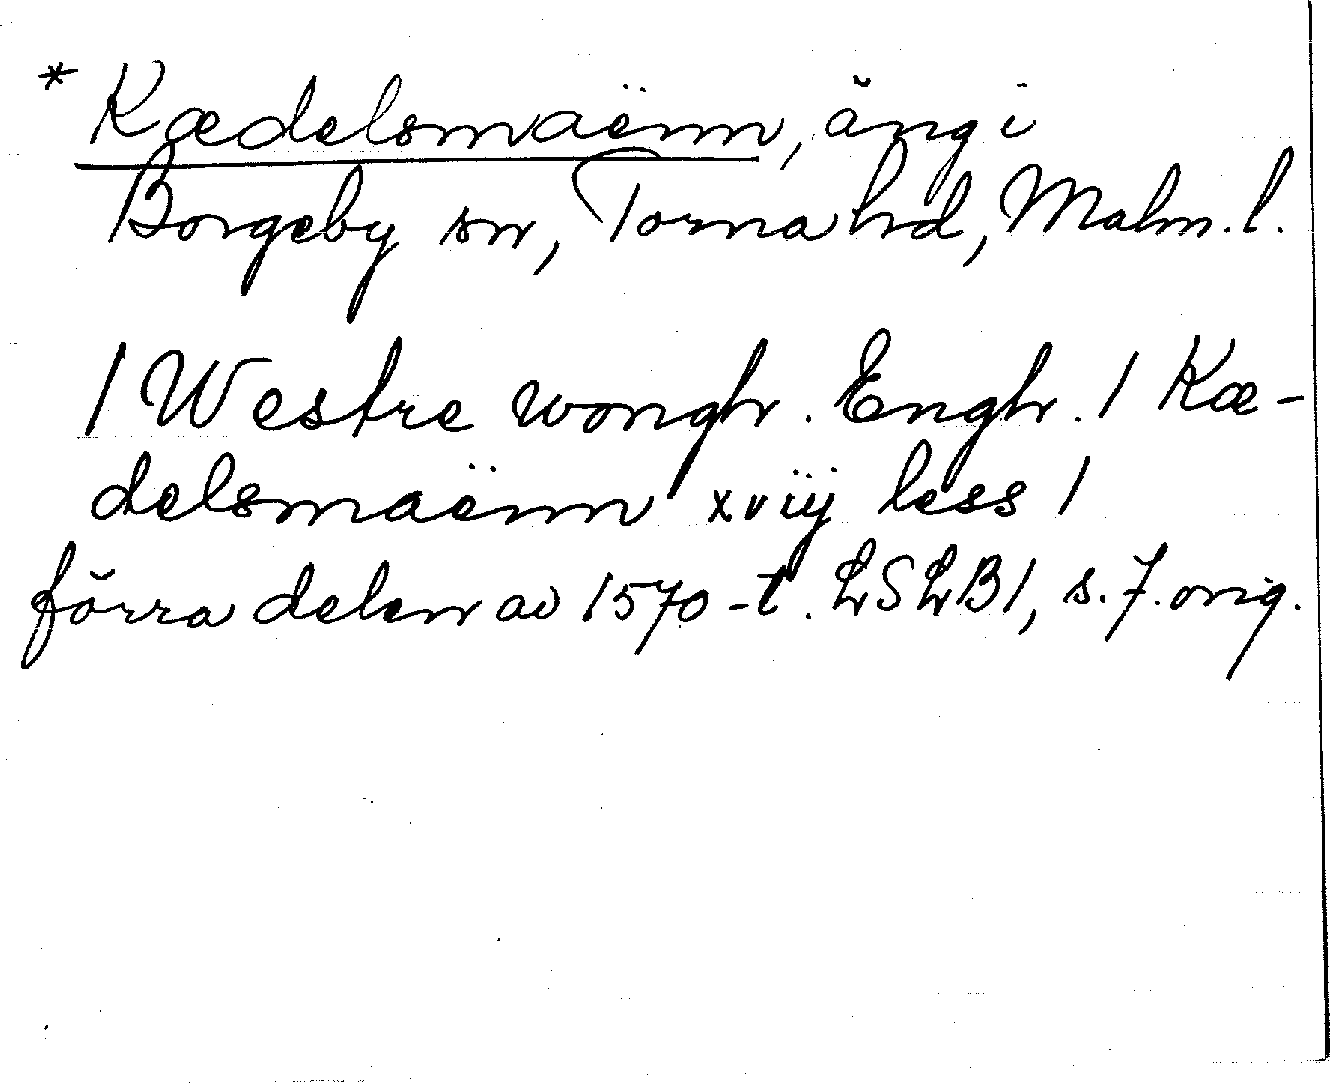 * Kædelsmaënn, äng i
Borgeby sn, Torna hd, Malm. l.
/ Westre wongh. Engh. / Kæ-
delsmaënn xviij less /
förra delen av 1570-t. LSLB1, s. 7. orig.